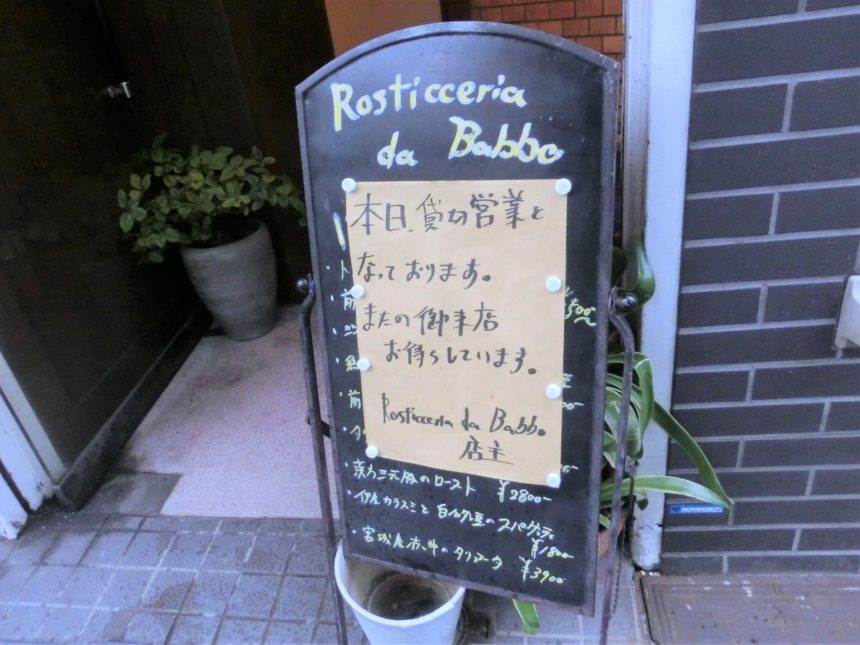 Rosticceria
da Babbo
本日、貸切営業と
なっております。
またの御来店
お待ちしています。
Rosticceria da Babbo
店主
のロースト ¥2800-
カラスミと白インゲン豆のスパゲッティ
¥1800-
宮城産 牛のタリアータ
¥3900-